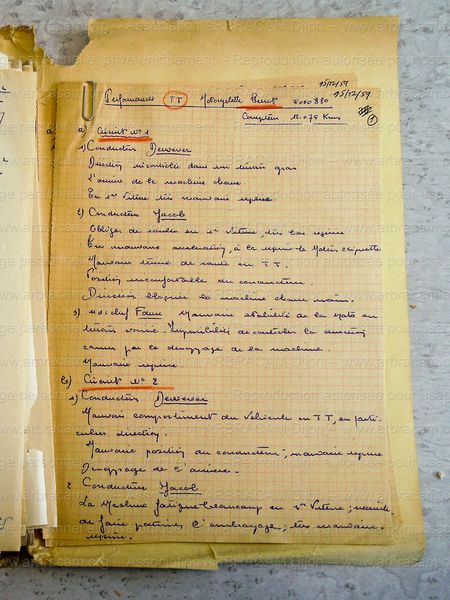 15/12/59
15/12/59
Performances TT Motocyclette Benot W080 880
Compteur 18.075 Kms
1
a) Circuit N° 1
1) Conducteur Dewever
Direction incontrôlable dans un terrain gras
L'arrière de la machine chasse.
En 1re Vitesse très mauvaise reprise.
2) Conducteur Jacob
Obligée de rouler en 1re Vitesse, très bas régime
Très mauvaise accélération, à la reprise le Moteur cliquette
Mauvaise tenue de route en TT.
Position inconfortable du conducteur.
Direction bloquée la machine chasse
3) Mdl chef Mauvaise stabilité de la Moto en
terrain varié. Impossibilité de contrôler la direction
causée par le dérapage de la machine.
Mauvaise reprise.
b) Circuit N° 2
1) Conducteur Dewever
Mauvais comportement du Véhicule en TT, en parti-
culier direction.
Mauvaise position du conducteur, mauvaise reprise
Dérapage de l'arrière.
2 Conducteur Jacob
La Machine fatigue beaucoup en 1re Vitesse, nécessité
de faire patiner l'embrayage, très mauvaise
reprise.